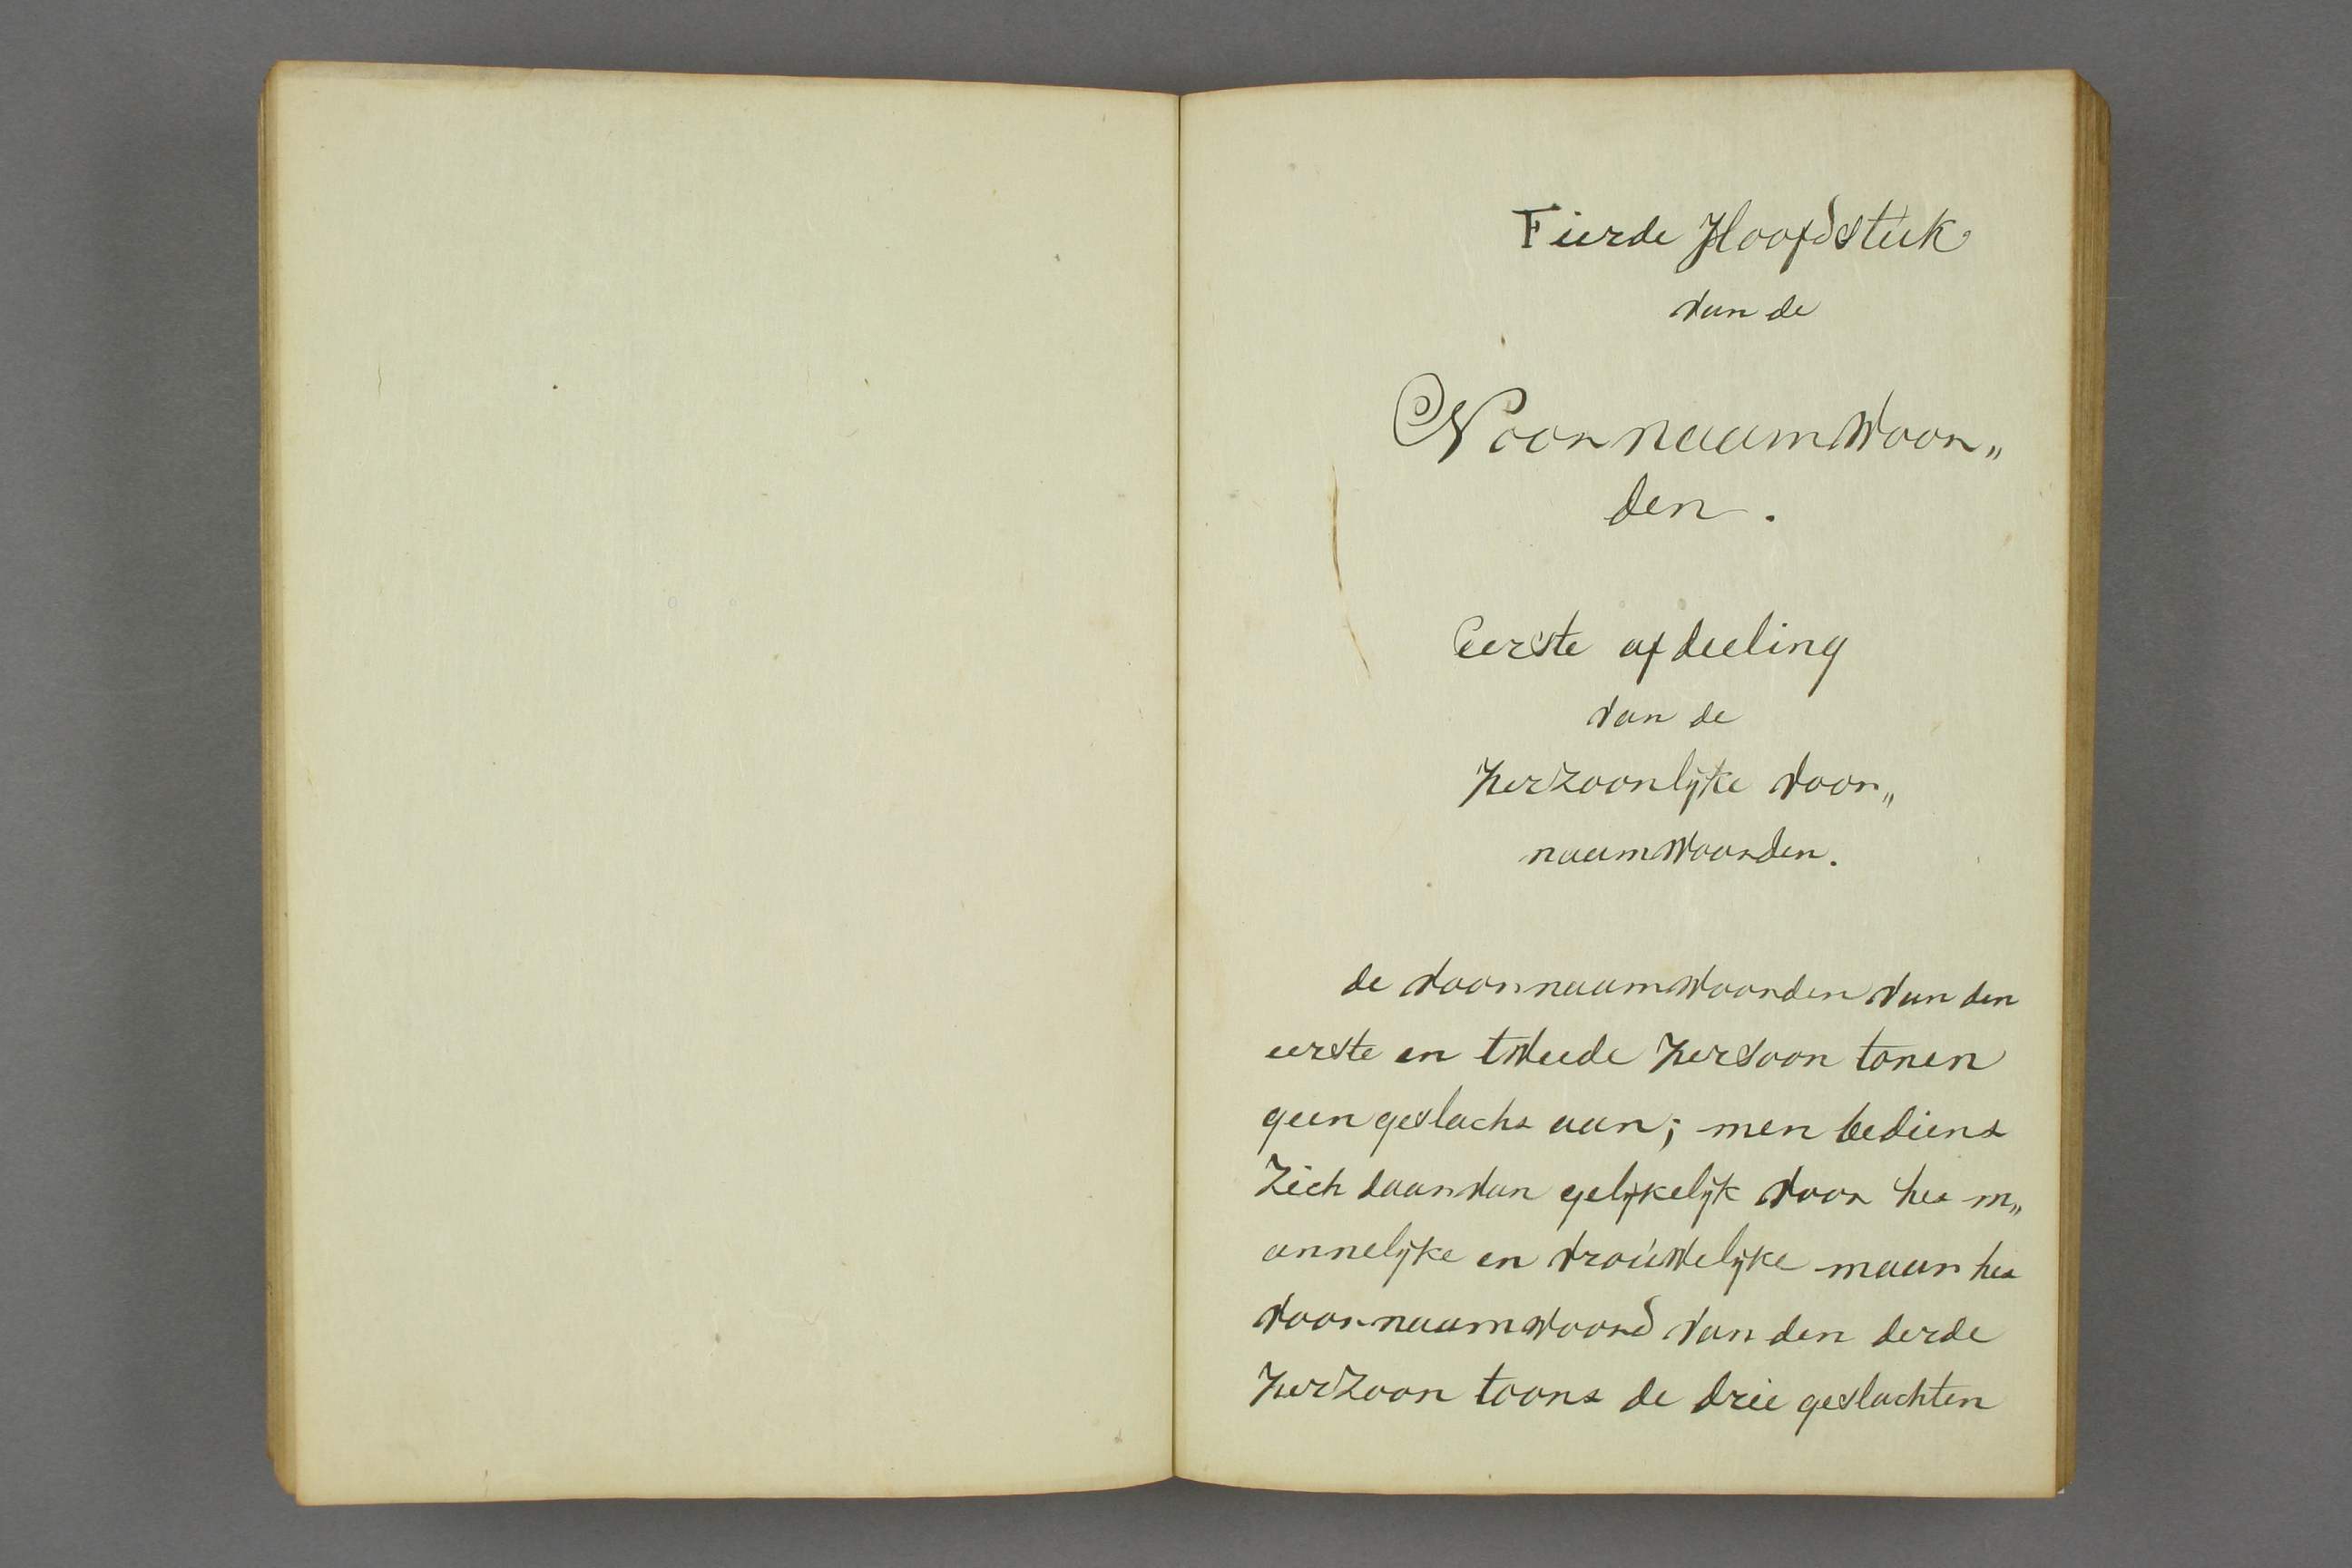 Fierde Hoofdstuk
van de
Voornaamwoor„
den.
Eerste afdeeling
van de
perzoonlijke voor„
naamwoorden.
de voornaamwoorden van den
eerste en tweede persoon tonen
geen geslacht aan; men bedient
Zich daarvan gelijkelijk voor het m„
annelijke en vrouwelijke maar het
voornaamwoord van den derde
perzoon toont de drie geslachten